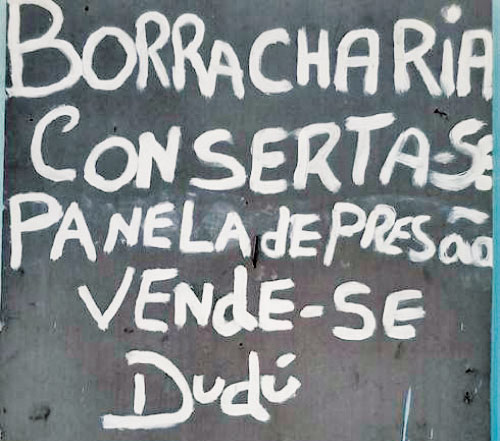 BORRACHARiA
CONSERTA-SE
PANELA dE PRESão
VENdE-SE
Dudú